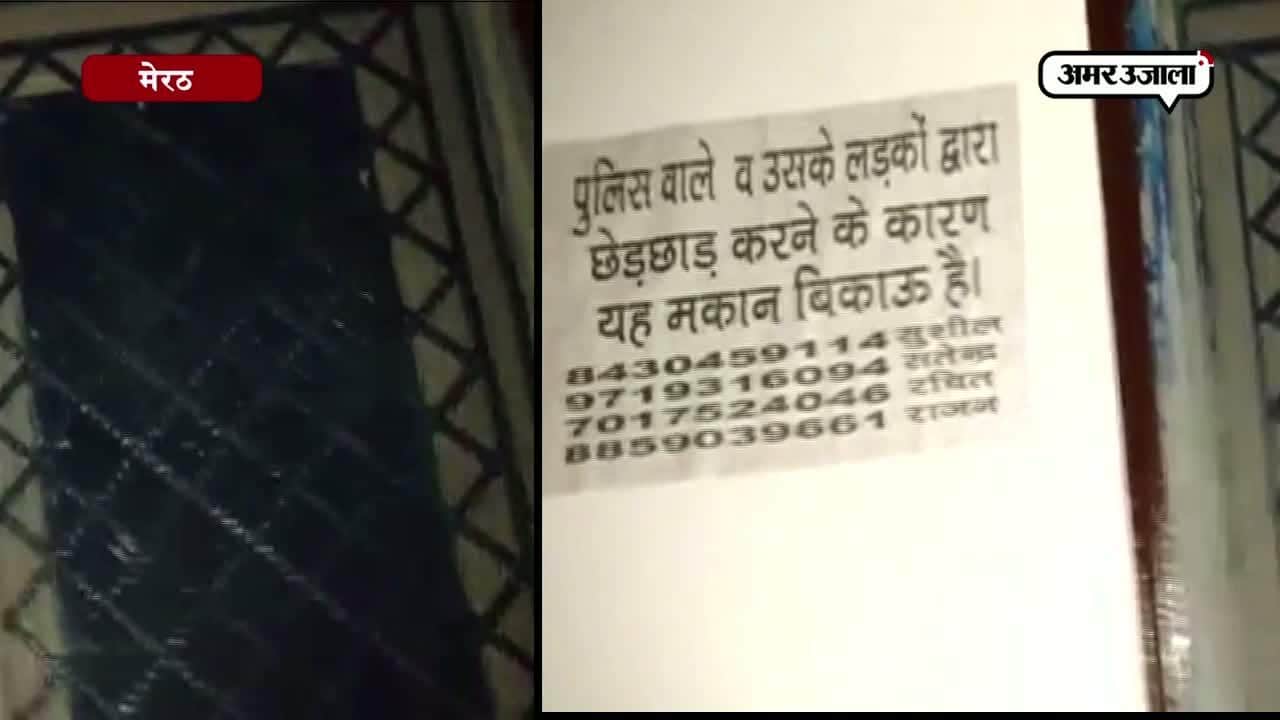 मेरठ
अमर उजाला
पुलिस वाले व उसके लड़कों द्वारा
छेड़छाड़ करने के कारण
यह मकान बिकाऊ है।
8430459114 सुशील
9719316094 सतेन्द्र
7017524046 रचित
8859039661 राजन